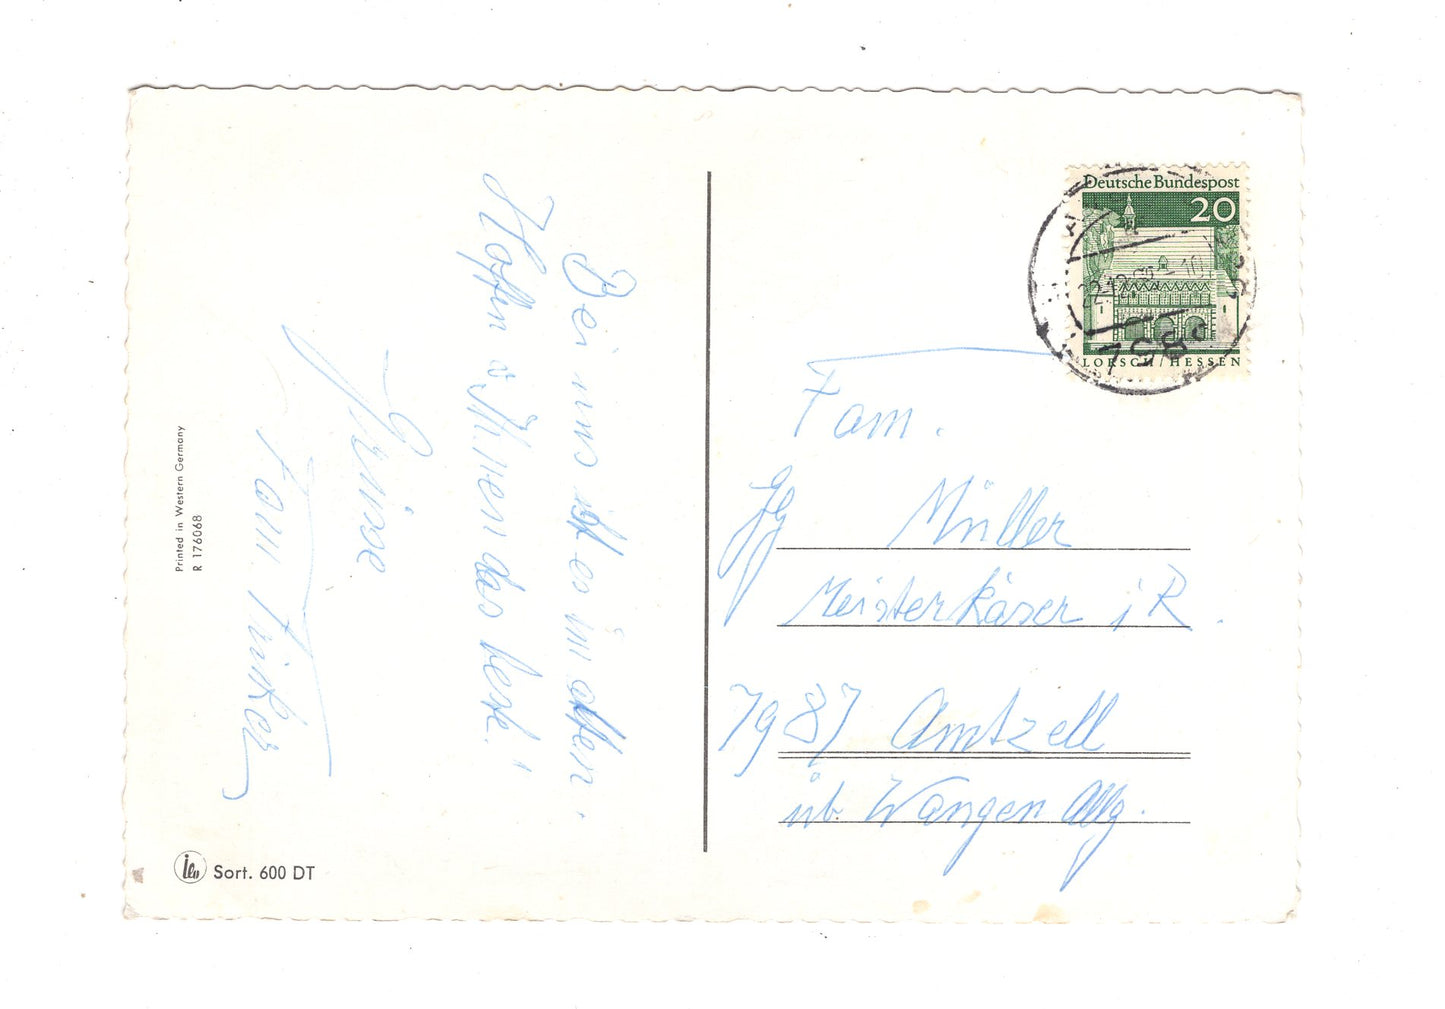 Bei uns ist es im alten.
Hoffen v. Ihnen das beste!
Grüsse
Fam.
Printed in Western Germany
R 176068
Sort. 600 DT
Deutsche Bundespost
20
LORSCH / HESSEN
Fam.
Müller
Meisterkäser i R.
7987 Amtzell
üb. Wangen Allg.